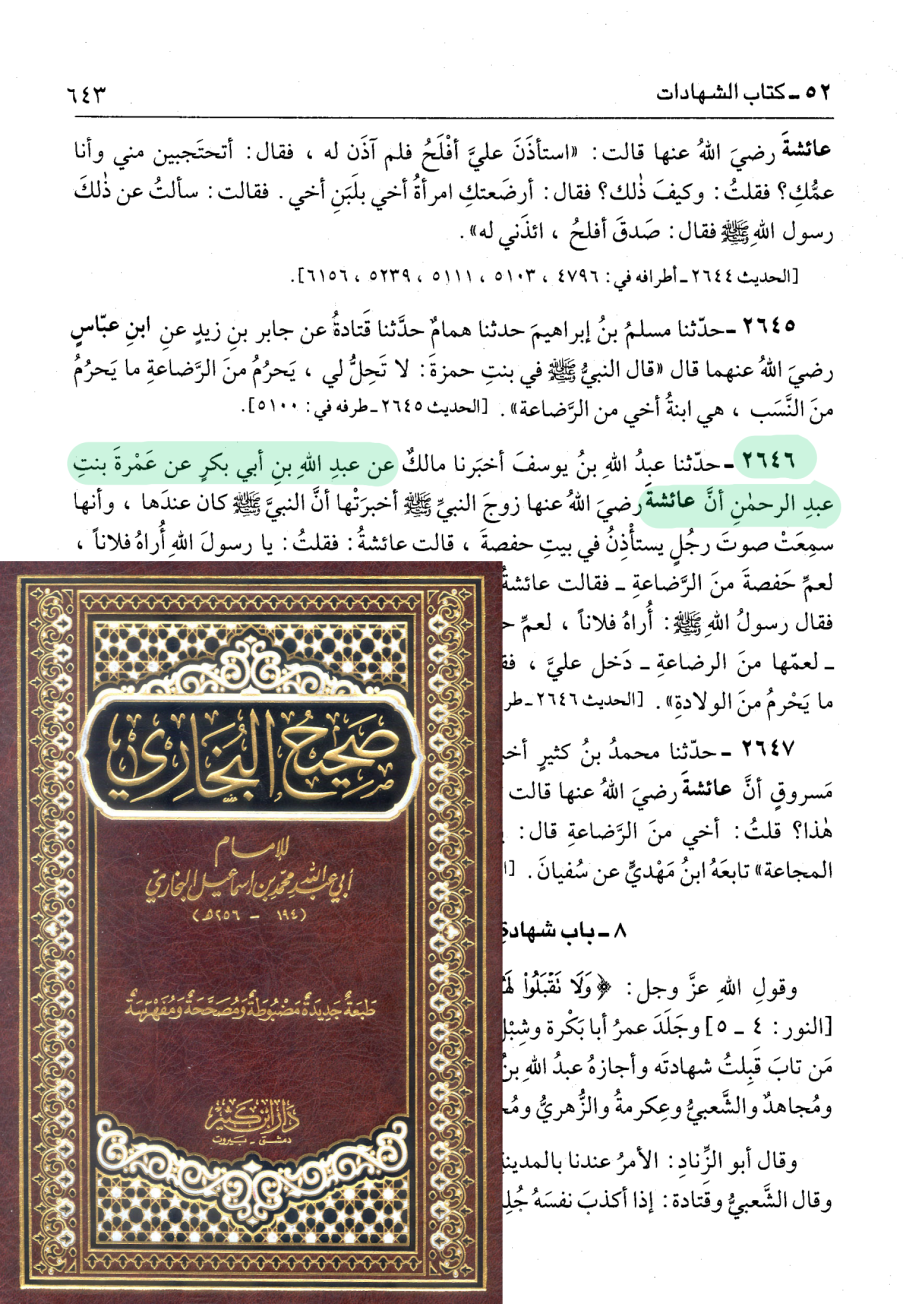 ٥٢ ـ كتاب الشهادات
٦٤٣
عائشةَ رضيَ اللهُ عنها قالت: «استأذَنَ عليَّ أفْلَحُ فلم آذَن له ، فقال: أتحتَجبين مني وأنا
عمُّكِ؟ فقلتُ: وكيفَ ذٰلك؟ فقال: أرضَعتكِ امرأةُ أخي بلَبَنِ أخي. فقالت: سألتُ عن ذٰلكَ
رسول اللهِ ﷺ فقال: صَدقَ أفلحُ ، ائذَني له».
[الحديث ٢٦٤٤ ـ أطرافه في: ٤٧٩٦ ، ٥١٠٣ ، ٥١١١ ، ٥٢٣٩ ، ٦١٥٦].
٢٦٤٥ ـ حدّثنا مسلمُ بنُ إبراهيمَ حدثنا همامٌ حدَّثنا قَتادةُ عن جابر بنِ زيدٍ عنِ ابنِ عبّاسٍ
رضيَ اللهُ عنهما قال «قال النبيُّ ﷺ في بنتِ حمزةَ: لا تَحِلُّ لي ، يَحرُمُ منَ الرَّضاعةِ ما يَحرُمُ
منَ النَّسَب ، هي ابنةُ أخي من الرَّضاعة». [الحديث ٢٦٤٥ ـ طرفه في: ٥١٠٠].
٢٦٤٦ ـ حدّثنا عبدُ اللهِ بنُ يوسفَ أخبَرنا مالكٌ عن عبدِ اللهِ بنِ أبي بكرٍ عن عَمْرةَ بنتِ
عبدِ الرحمٰنِ أنَّ عائشةَ رضيَ اللهُ عنها زوجَ النبيِّ ﷺ أخبرَتْها أنَّ النبيَّ ﷺ كان عندَها ، وأنها
سمِعَتْ صوتَ رجُلٍ يستأْذِنُ في بيتِ حفصةَ ، قالت عائشةُ: فقلتُ: يا رسولَ اللهِ أُراهُ فلاناً ،
لعمِّ حَفصةَ منَ الرَّضاعةِ ـ فقالت عائشةُ
فقال رسولُ اللهِ ﷺ: أُراهُ فلاناً ، لعمِّ
ـ لعمّها منَ الرضاعةِ ـ دَخل عليَّ ،
ما يَحْرمُ منَ الولادةِ». [الحديث ٢٦٤٦ ـ
٢٦٤٧ ـ حدّثنا محمدُ بنُ كثيرٍ
مَسروقٍ أنَّ عائشةَ رضيَ اللهُ عنها قالت
هٰذا؟ قلتُ: أخي منَ الرَّضاعةِ قال:
المجاعة» تابعَهُ ابنُ مَهْديٍّ عن سُفيانَ.
٨ ـ باب شهادة
وقولِ اللهِ عزَّ وجل: ﴿وَلَا تَقْبَلُوا۟
[النور: ٤ ـ ٥] وجَلَدَ عمرُ أبا بَكْرة وشِبْل
مَن تابَ قَبِلتُ شهادتَه وأجازهُ عبدُ اللهِ بنُ
ومُجاهدٌ والشَّعبيُّ وعِكرمةُ والزُّهريُّ
وقال أبو الزِّنادِ: الأمرُ عندنا بالمدينة
وقال الشَّعبيُّ وقتادة: إذا أكذبَ نفسَهُ
صَحِيحُ البُخَارِي
للإمام
أبي عبد الله محمد بن إسماعيل البخاري
(١٩٤ - ٢٥٦هـ)
طَبْعَةٌ جَدِيدَةٌ مَضْبُوطَةٌ وَمُصَحَّحَةٌ وَمُفَهْرَسَةٌ
دار ابن كثير
دمشق - بيروت